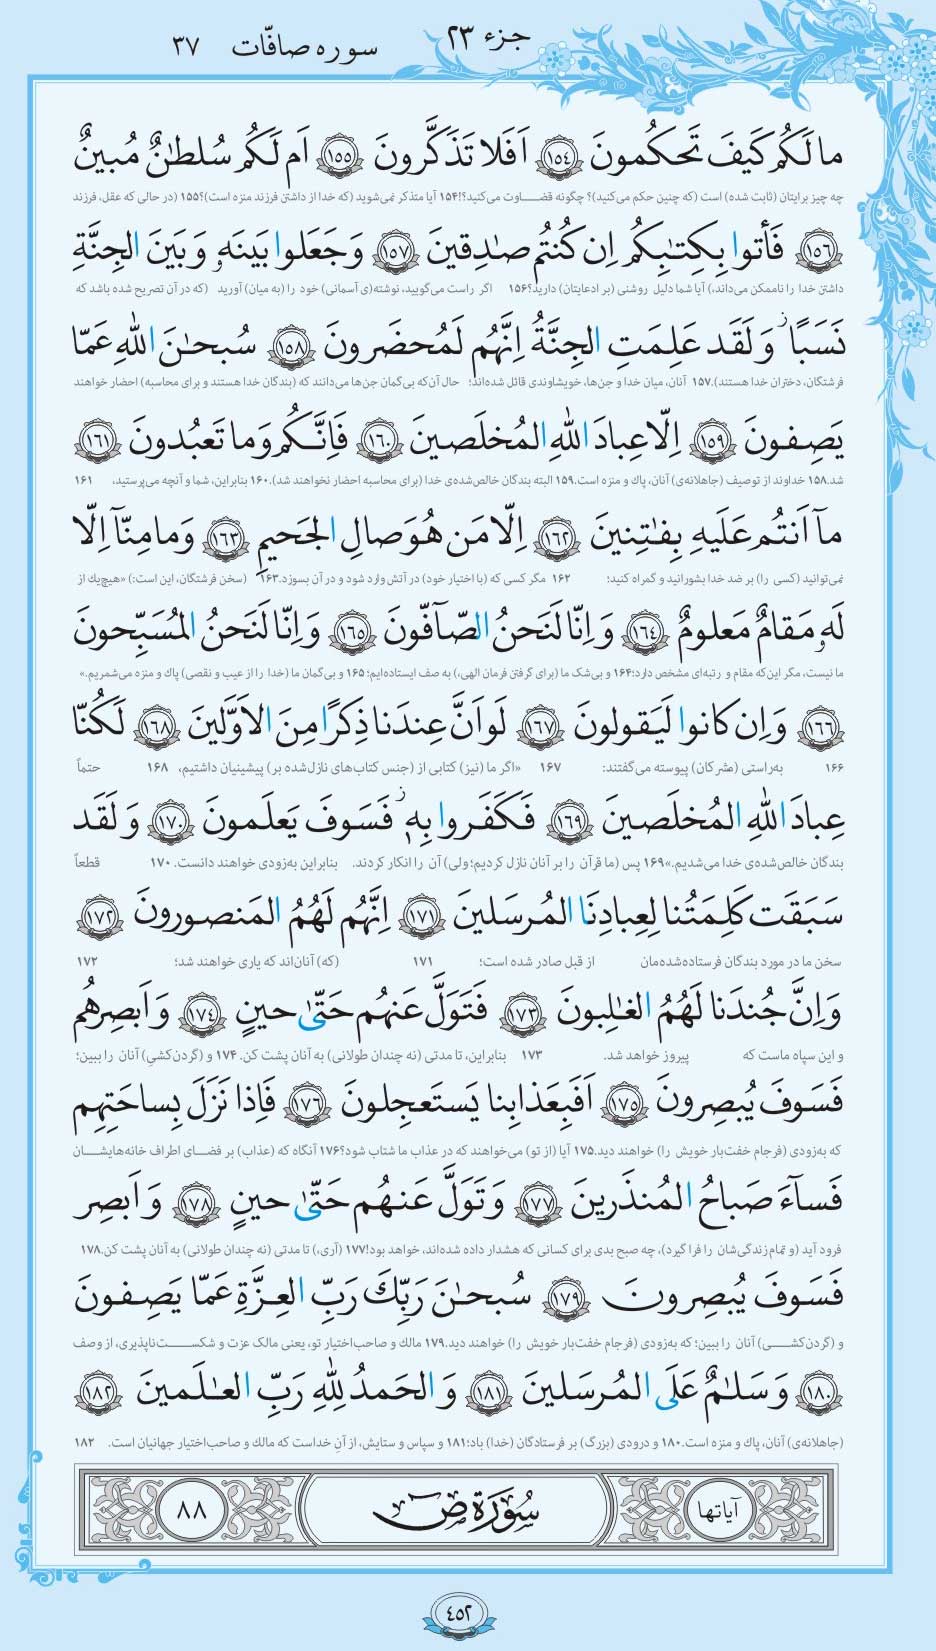 جزء ۲۳
سوره صافّات ۳۷
ما لَکُم کَیفَ تَحکُمونَ ۱۵۴ اَفَلا تَذَکَّرونَ ۱۵۵ اَم لَکُم سُلطٰنٌ مُبینٌ
چه چیز برایتان (ثابت شده) است (که چنین حکم می‌کنید)؟ چگونه قضـاوت می‌کنید؟!۱۵۴ آیا متذکر نمی‌شوید (که خدا از داشتن فرزند منزه است)؟۱۵۵ (در حالی که عقل، فرزند
۱۵۶ فَأتوا بِکِتٰبِکُم اِن کُنتُم صٰدِقینَ ۱۵۷ وَ جَعَلوا بَینَهٗ وَ بَینَ الجِنَّةِ
داشتن خدا را ناممکن می‌داند،) آیا شما دلیل روشنی (بر ادعایتان) دارید؟۱۵۶ اگر راست می‌گویید، نوشته(ی آسمانی) خود را (به میان) آورید (که در آن تصریح شده باشد که
نَسَبًا ز وَ لَقَد عَلِمَتِ الجِنَّةُ اِنَّهُم لَمُحضَرونَ ۱۵۸ سُبحٰنَ اللهِ عَمّا
فرشتگان، دختران خدا هستند).۱۵۷ آنان، میان خدا و جن‌ها، خویشاوندی قائل شده‌اند؛ حال آن‌که بی‌گمان جن‌ها می‌دانند که (بندگان خدا هستند و برای محاسبه) احضار خواهند
یَصِفونَ ۱۵۹ اِلّا عِبادَ اللهِ المُخلَصینَ ۱۶۰ فَاِنَّکُم وَ ما تَعبُدونَ ۱۶۱
شد.۱۵۸ خداوند از توصیف (جاهلانه‌ی) آنان، پاك و منزه است.۱۵۹ البته بندگان خالص‌شده‌ی خدا (برای محاسبه احضار نخواهند شد).۱۶۰ بنابراین، شما و آنچه می‌پرستید، ۱۶۱
مآ اَنتُم عَلَیهِ بِفٰتِنینَ ۱۶۲ اِلّا مَن هُوَ صالِ الجَحیمِ ۱۶۳ وَ ما مِنّآ اِلّا
نمی‌توانید (کسی را) بر ضد خدا بشورانید و گمراه کنید؛ ۱۶۲ مگر کسی که (با اختیار خود) در آتش وارد شود و در آن بسوزد.۱۶۳ (سخن فرشتگان، این است:) «هیچ‌یك از
لَهٗ مَقامٌ مَعلومٌ ۱۶۴ وَ اِنّا لَنَحنُ الصّآفّونَ ۱۶۵ وَ اِنّا لَنَحنُ المُسَبِّحونَ
ما نیست، مگر این‌که مقام و رتبه‌ای مشخص دارد؛۱۶۴ و بی‌شک ما (برای گرفتن فرمان الهی،) به صف ایستاده‌ایم؛۱۶۵ و بی‌گمان ما (خدا را از عیب و نقصی) پاك و منزه می‌شمریم.»
۱۶۶ وَ اِن کانوا لَیَقولونَ ۱۶۷ لَو اَنَّ عِندَنا ذِکرًا مِنَ الاَوَّلینَ ۱۶۸ لَکُنّا
۱۶۶ به‌راستی (مشرکان) پیوسته می‌گفتند: ۱۶۷ «اگر ما (نیز) کتابی از (جنس کتاب‌های نازل‌شده بر) پیشینیان داشتیم، ۱۶۸ حتماً
عِبادَ اللهِ المُخلَصینَ ۱۶۹ فَکَفَروا بِهٖ ز فَسَوفَ یَعلَمونَ ۱۷۰ وَ لَقَد
بندگان خالص‌شده‌ی خدا می‌شدیم.»۱۶۹ پس (ما قرآن را بر آنان نازل کردیم؛ولی) آن را انکار کردند. بنابراین به‌زودی خواهند دانست. ۱۷۰ قطعاً
سَبَقَت کَلِمَتُنا لِعِبادِنَا المُرسَلینَ ۱۷۱ اِنَّهُم لَهُمُ المَنصورونَ ۱۷۲
سخن ما در مورد بندگان فرستاده‌شده‌مان از قبل صادر شده است؛ ۱۷۱ (که) آنان‌اند که یاری خواهند شد؛ ۱۷۲
وَ اِنَّ جُندَنا لَهُمُ الغٰلِبونَ ۱۷۳ فَتَوَلَّ عَنهُم حَتّیٰ حینٍ ۱۷۴ وَ اَبصِرهُم
و این سپاه ماست که پیروز خواهد شد. ۱۷۳ بنابراین، تا مدتی (نه چندان طولانی) به آنان پشت کن. ۱۷۴ و (گردن‌کشیِ) آنان را ببین؛
فَسَوفَ یُبصِرونَ ۱۷۵ اَفَبِعَذابِنا یَستَعجِلونَ ۱۷۶ فَاِذا نَزَلَ بِساحَتِهِم
که به‌زودی (فرجام خفت‌بار خویش را) خواهند دید.۱۷۵ آیا (از تو) می‌خواهند که در عذاب ما شتاب شود؟۱۷۶ آنگاه که (عذاب) بر فضـای اطراف خانه‌هایشـان
فَسآءَ صَباحُ المُنذَرینَ ۱۷۷ وَ تَوَلَّ عَنهُم حَتّیٰ حینٍ ۱۷۸ وَ اَبصِر
فرود آید (و تمام زندگی‌شان را فرا گیرد)، چه صبح بدی برای کسانی که هشدار داده شده‌اند، خواهد بود!۱۷۷ (آری،) تا مدتی (نه چندان طولانی) به آنان پشت کن.۱۷۸
فَسَوفَ یُبصِرونَ ۱۷۹ سُبحٰنَ رَبِّكَ رَبِّ العِزَّةِ عَمّا یَصِفونَ
و (گردن‌کشـی) آنان را ببین؛ که به‌زودی (فرجام خفت‌بار خویش را) خواهند دید.۱۷۹ مالك و صاحب‌اختیار تو، یعنی مالک عزت و شکسـت‌ناپذیری، از وصف
۱۸۰ وَ سَلٰمٌ عَلَی المُرسَلینَ ۱۸۱ وَ الحَمدُ لِلّٰهِ رَبِّ العٰلَمینَ ۱۸۲
(جاهلانه‌ی) آنان، پاك و منزه است.۱۸۰ و درودی (بزرگ) بر فرستادگان (خدا) باد؛۱۸۱ و سپاس و ستایش، از آنِ خداست که مالك و صاحب‌اختیار جهانیان است. ۱۸۲
آیاتها سُورَةُ صٓ ۸۸
۴۵۲